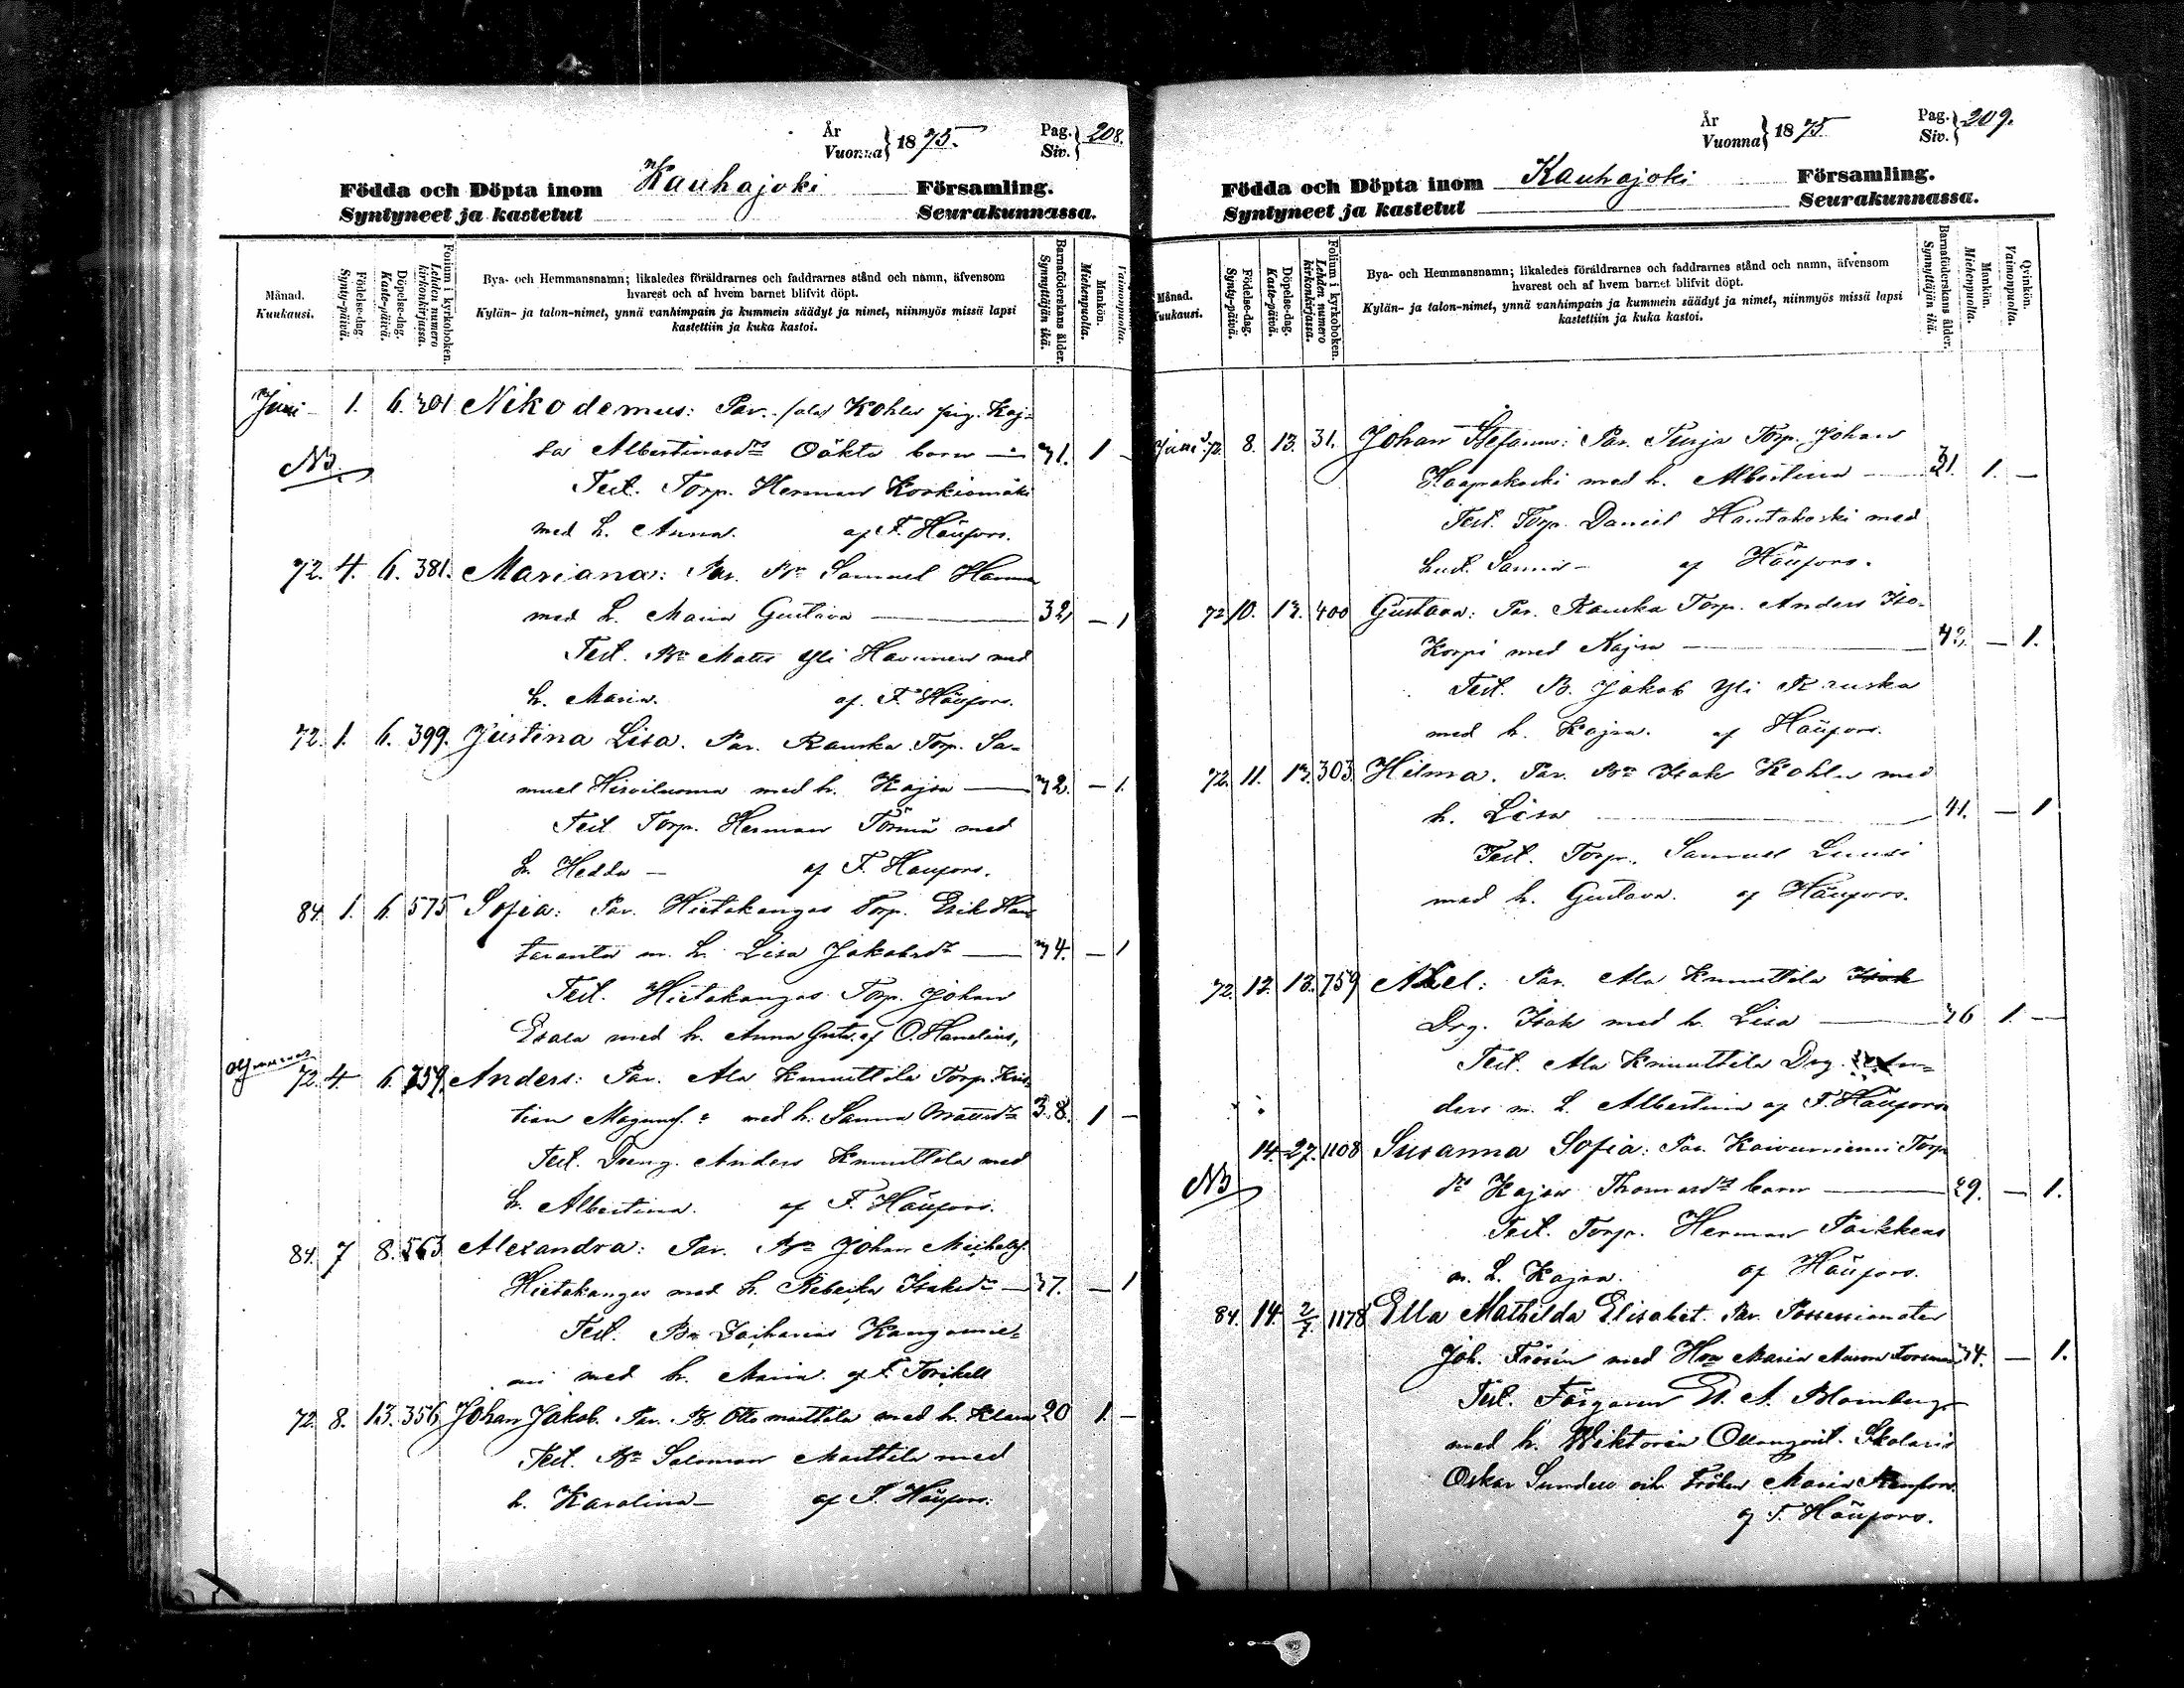 År
Vuonna } 1875.
Pag.
Siv. } 208.
Födda och Döpta inom Kauhajoki Församling.
Syntyneet ja kastetut Seurakunnassa.
Månad.
Kuukausi.
Födelse-dag.
Synty-päivä.
Döpelse-dag.
Kaste-päivä.
Folium i kyrkoboken.
Lehden numero
kirkonkirjassa.
Bya- och Hemmansnamn; likaledes föräldrarnes och faddrarnes stånd och namn, äfvensom
hvarest och af hvem barnet blifvit döpt.
Kylän- ja talon-nimet, ynnä vanhimpain ja kummein säädyt ja nimet, niinmyös missä lapsi
kastettiin ja kuka kastoi.
Barnaföderskans ålder.
Synnyttäjän ikä.
Mankön.
Miehenpuolia.
Vaimonpuolia.
Juni 1. 6. 301 Nikodemus: Par. Kohlu pig. Kaj-
sa Albertina Öökta barn 31. 1 -
NB.
Test. Torp. Herman Korkiamäki
med h. Anna. af F. Häufors.
72. 4. 6. 381. Mariana: Par. Bn Samuel
med h. Maria Gustava 32 - 1
Test. Bn Matts Yli Havunen med
h. Maria. af. F. Häufors.
72. 1. 6. 399. Justina Lisa. Par. Rauska Torp. Sa-
muel Hirviluoma med h. Kajsa 32. - 1.
Test. Torp. Herman Törmä med
h. Hedda - af F. Häufors.
84. 1. 6. 575 Sofia: Par. Hietakangas Torp. Erik
taranta m. h. Lisa Jakobsdr 34. - 1
Test. Hietakangas Torp. Johan
med h. Anna Gust. af O. Hanelius,
72. 4 6. 759. Anders: Par. Ala Knuuttila Torp. Kris-
tian med h. Sanna Mattsdr 38. 1 -
Test. Dreng. Anders Knuuttila med
h. Albertina. af F. Häufors.
84. 7 8. 563 Alexandra: Par. Bn Johan Michelss.
Hietakangas med h. Rebecka Isaksdr 37. - 1
Test. Bn Zacharias Kangasnie-
mi med h. Maria. af F. Toricell
72. 8. 13. 356 Johan Jakob. Par. B. Otto Marttila med h. Klara 20 1. -
Test. Bn Salomon Marttila med
h. Karolina - af F. Häufors.
År
Vuonna } 1875.
Pag.
Siv. } 209.
Födda och Döpta inom Kauhajoki Församling.
Syntyneet ja kastetut Seurakunnassa.
Månad.
Kuukausi.
Födelse-dag.
Synty-päivä.
Döpelse-dag.
Kaste-päivä.
Folium i kyrkoboken.
Lehden numero
kirkonkirjassa.
Bya- och Hemmansnamn; likaledes föräldrarnes och faddrarnes stånd och namn, äfvensom
hvarest och af hvem barnet blifvit döpt.
Kylän- ja talon-nimet, ynnä vanhimpain ja kummein säädyt ja nimet, niinmyös missä lapsi
kastettiin ja kuka kastoi.
Barnaföderskans ålder.
Synnyttäjän ikä.
Mankön.
Miehenpuolia.
Qvinkön.
Vaimonpuolia.
Juni 72. 8. 13. 31. Johan Stefanus: Par. Turja Torp. Johan
Haapakoski med h. Albertina 31. 1. -
Test. Torp. Daniel Hautakoski med
hust. Sanna - af Häufors.
72 10. 13. 400 Gustava: Par. Rauska Torp. Anders Iso-
Korpi med Kajsa 42. - 1.
Test. B. Jakob Yli Rauska
med h. Kajsa. af Häufors.
72. 11. 13. 303 Hilma. Par. Bn Isak Kohlu med
h. Lisa 41. - 1
Test. Torp. Samuel Luusi
med h. Gustava. af Häufors.
72. 12. 13. 759 Axel: Par. Ala Knuuttila Isak
Drg. Isak med h. Lisa 36 1. -
Test. Ala Knuuttila Drg. An-
ders m. h. Albertina af F. Häufors
14. 27. 1108 Susanna Sofia: Par. Koivuniemi Torp
dr Kajsa Thomasdrs barn 29. - 1.
NB
Test. Torp. Herman Paikkeus
m. h. Kajsa. af Häufors.
84. 14. 2/7. 1178 Ella Mathilda Elisabet. Par. Possessionaten
Joh. Frösén med Hru Maria Aurora Forsman 34. - 1.
Test. Färgaren A. Blomberg
med h. Wiktoria Skolaris
Oskar Sundell och Fröken Maria Häufors.
af F. Häufors.